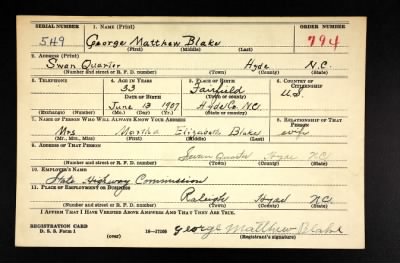 SERIAL NUMBER 1. NAME (Print) ORDER NUMBER
549 George Matthew Blake 794
(First) (Middle) (Last)
2. ADDRESS (Print)
Swan Quarter Hyde N.C.
(Number and street or R. F. D. number) (Town) (County) (State)
3. TELEPHONE 4. AGE IN YEARS 5. PLACE OF BIRTH 6. COUNTRY OF CITIZENSHIP
33 Fairfield
DATE OF BIRTH (Town or county) U.S.
June 13 1907 Hyde Co. N.C.
(Exchange) (Number) (Mo.) (Day) (Yr.) (State or country)
7. NAME OF PERSON WHO WILL ALWAYS KNOW YOUR ADDRESS 8. RELATIONSHIP OF THAT PERSON
Mrs Martha Elizabeth Blake wife
(Mr., Mrs., Miss) (First) (Middle) (Last)
9. ADDRESS OF THAT PERSON
Swan Quarter Hyde N.C.
(Number and street or R. F. D. number) (Town) (County) (State)
10. EMPLOYER'S NAME
State Highway Commission
11. PLACE OF EMPLOYMENT OR BUSINESS
Raleigh Hyde N.C.
(Number and street or R. F. D. number) (Town) (County) (State)
I AFFIRM THAT I HAVE VERIFIED ABOVE ANSWERS AND THAT THEY ARE TRUE.
REGISTRATION CARD George Matthew Blake
D. S. S. Form 1 (over) 16—17105 (Registrant's signature)